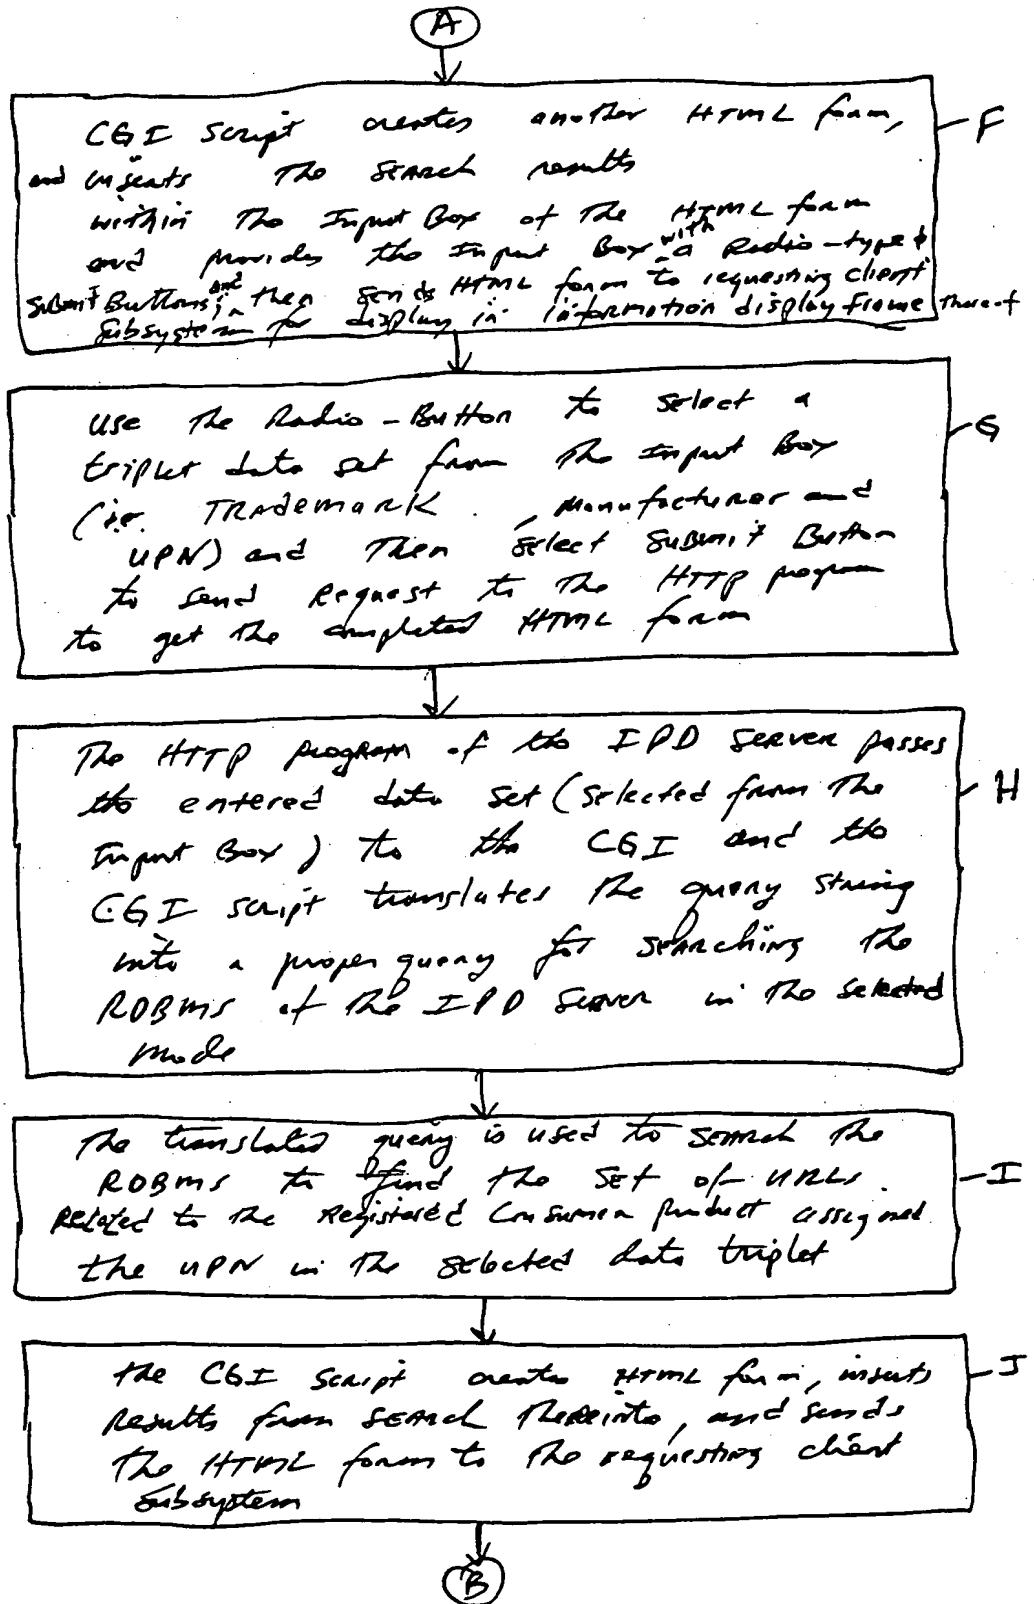 A
CGI Script creates another HTML form, F
and inserts the search results
within the Input Box of the HTML form
and provides the Input Box with a Radio-type &
Submit Buttons; and then sends HTML form to requesting client
subsystem for display in information display frame thereof
use the Radio-Button to select a G
triplet data set from the Input Box
(i.e. TRademark, Manufacturer and
UPN) and then select Submit Button
to send Request to the HTTP program
to get the completed HTML form
The HTTP program of the IPD Server passes
the entered data set (selected from the H
Input Box) to the CGI and the
CGI script translates the query string
into a proper query for searching the
RDBMS of the IPD Server in the selected
mode
The translated query is used to search the
RDBMS to find the set of URLs I
Related to the Registered Consumer product assigned
the UPN in the selected data triplet
the CGI Script creates HTML form, inserts J
Results from search thereinto, and sends
the HTML form to the requesting client
subsystem
B